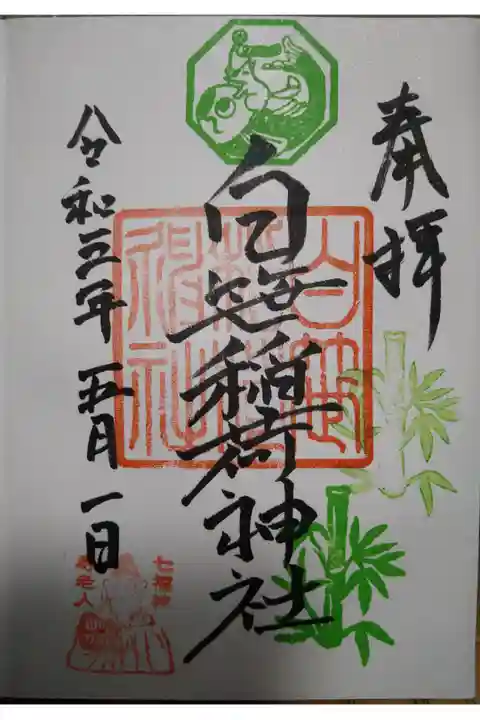 奉拝
白笹稲荷神社
令和五年五月一日
七福神
寿老人